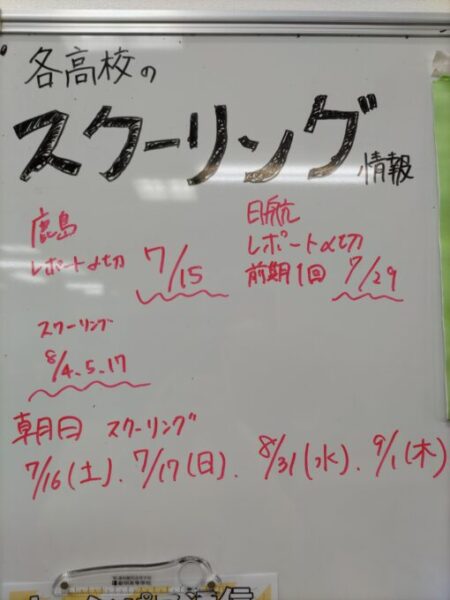 各高校の
スクーリング情報
鹿島
レポート〆切 7/15
スクーリング
8/4、5、17
日航
レポート〆切
前期1回 7/29
朝日 スクーリング
7/16(土)、7/17(日)、8/31(水)、9/1(木)